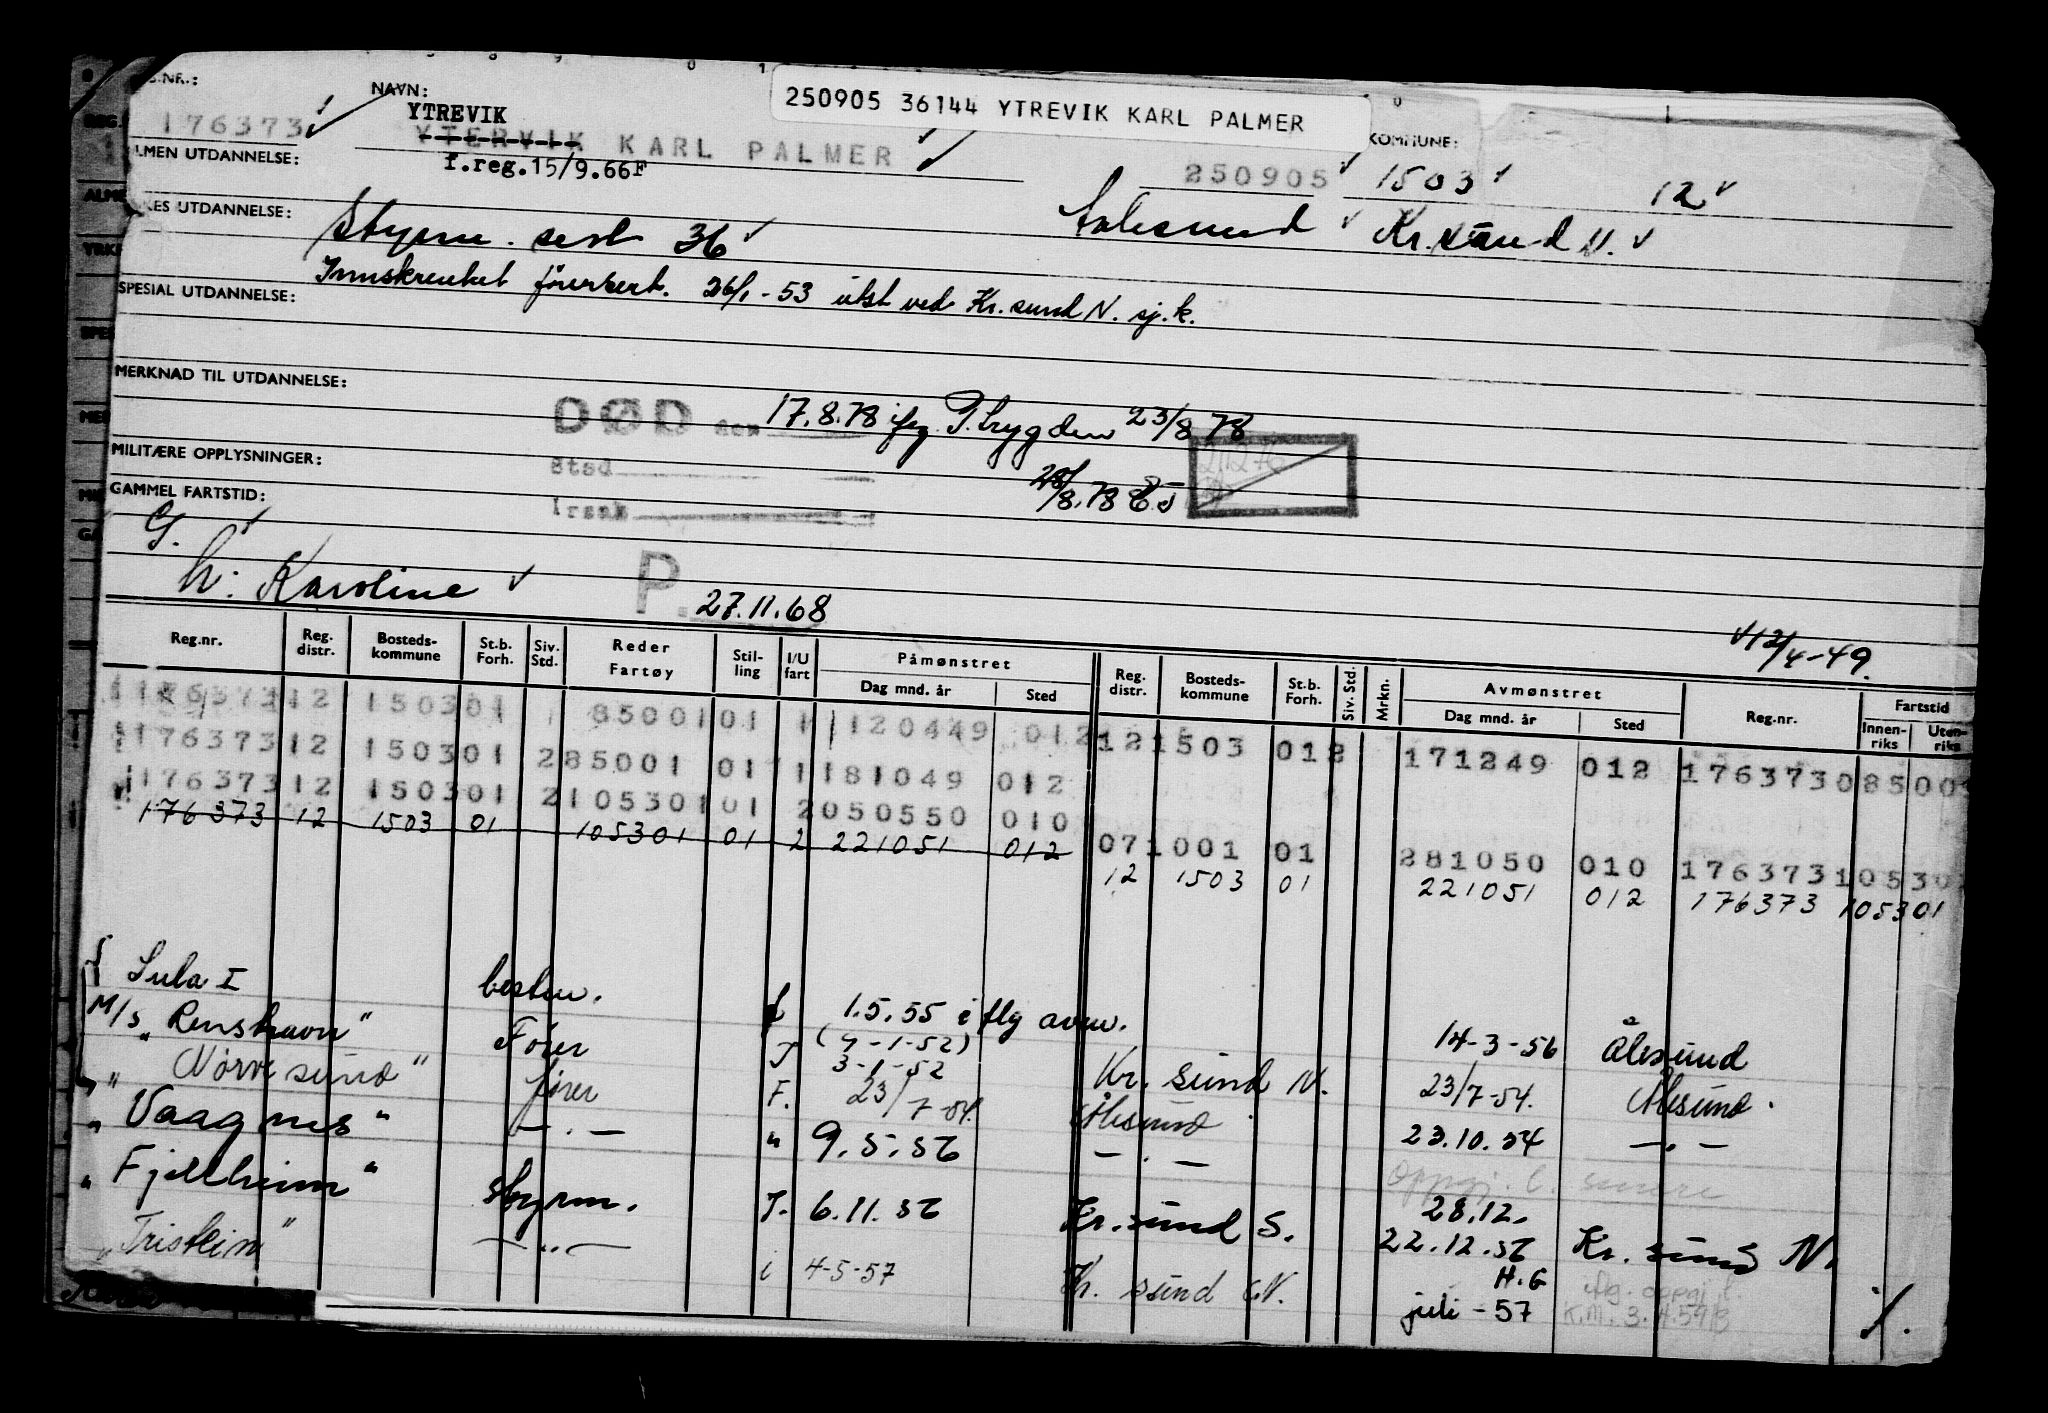 S.NR.: NAVN: 250905 36144 YTREVIK KARL PALMER KOMMUNE:
176373 YTREVIK
YTERVIK KARL PALMER 250905 1503 12
LMEN UTDANNELSE: f.reg.15/9.66F
KES UTDANNELSE: Styrm. sert 36 Aalesund Kr.sund N.
Innskrenket førersert. 26/1-53 utst ved Kr.sund N. sj.k.
SPESIAL UTDANNELSE:
MERKNAD TIL UTDANNELSE:
DØD den 17.8.78 ifg. P.trygden 23/8 78
MILITÆRE OPPLYSNINGER: Sted
28/8.78
GAMMEL FARTSTID: Årsak
G.
h: Karoline P. 27.11.68
12/4-49.
Reg.nr. Reg. distr. Bosteds- kommune St.b. Forh. Siv. Std. Reder Fartøy Stil- ling I/U fart Påmønstret Dag mnd. år Sted Reg. distr. Bosteds- kommune St.b. Forh. Siv. Std. Mrkn. Avmønstret Dag mnd. år Sted Reg.nr. Fartstid Innen- riks Uten- riks
176373 12 1503 01 1 85001 01 1 120449 012
176373 12 1503 01 2 85001 01 1 181049 012 12 1503 01 2 171249 012 176373 085001
176373 12 1503 01 2 105301 01 2 050550 010
176373 12 1503 01 105301 01 2 221051 012 07 1001 01 281050 010 176373 105301
12 1503 01 221051 012 176373 105301
Sula I bestm. 1.5.55 iflg avm. 14-3-56 Ålesund
M/s "Renshavn" Fører I (9-1-52) 3-1-52 Kr. sund N. 23/7-54. Ålesund.
" Nørvesund" fører F. 23/7-54. Ålesund 23.10.54 — " —
" Vaagnes" — . — " 9.5.56 — . — Oppgj. l. senere
" Fjellheim" styrm. I. 6.11.56 Kr. sund S. 28.12. 22.12.56 Kr. sund N.
"Tristein" — " — i 4-5-57 Kr. sund N. H.G juli - 57 iflg. oppgj. l. K.M. 3.4.59